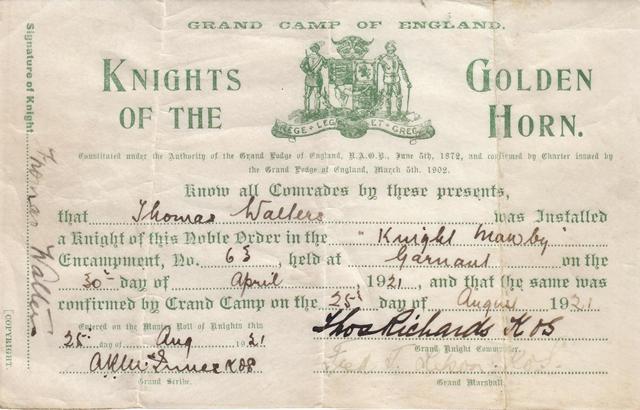 GRAND CAMP OF ENGLAND.
KNIGHTS OF THE GOLDEN HORN.
REGE LEGE ET GREGE
Constituted under the Authority of the Grand Lodge of England, R.A.O.B., June 5th, 1872, and confirmed by Charter issued by
the Grand Lodge of England, March 5th, 1902.
Know all Comrades by these presents,
that Thomas Walters was Installed
a Knight of this Noble Order in the "Knight Mawby"
Encampment, No. 63, held at Garnant on the
30 day of April 1921, and that the same was
confirmed by Grand Camp on the 25 day of August 1921
Entered on the Muster Roll of Knights this
25 day of Aug 1921
Thos Richards KOS
Grand Knight Commander.
KOS
Grand Scribe.
Fred T. KOS.
Grand Marshall.
Signature of Knight.
Thomas Walters
[COPYRIGHT.